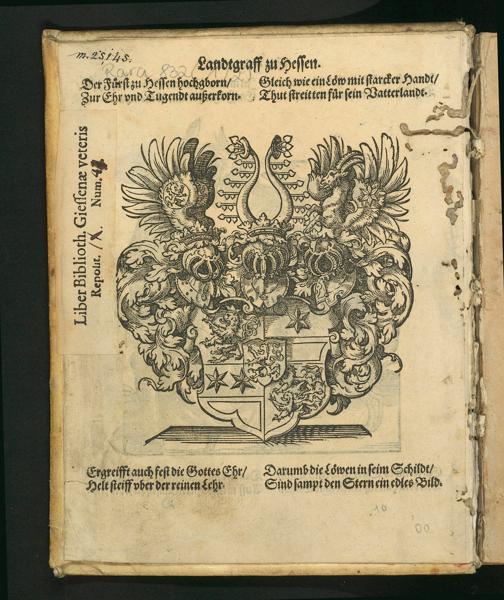 m. 25145.
Rara 832
Landtgraff zu Hessen.
Der Fürst zu Hessen hochgborn/
Zur Ehr vnd Tugendt außerkorn.
Gleich wie ein Löw mit starcker Handt/
Thut streitten für sein Vatterlandt.
Liber Biblioth. Giessenæ veteris
Reposit. Num.
Ergreifft auch fest die Gottes Ehr/
Helt steiff vber der reinen Lehr.
Darumb die Löwen in seim Schildt/
Sind sampt den Stern ein edles Bild.
10
00